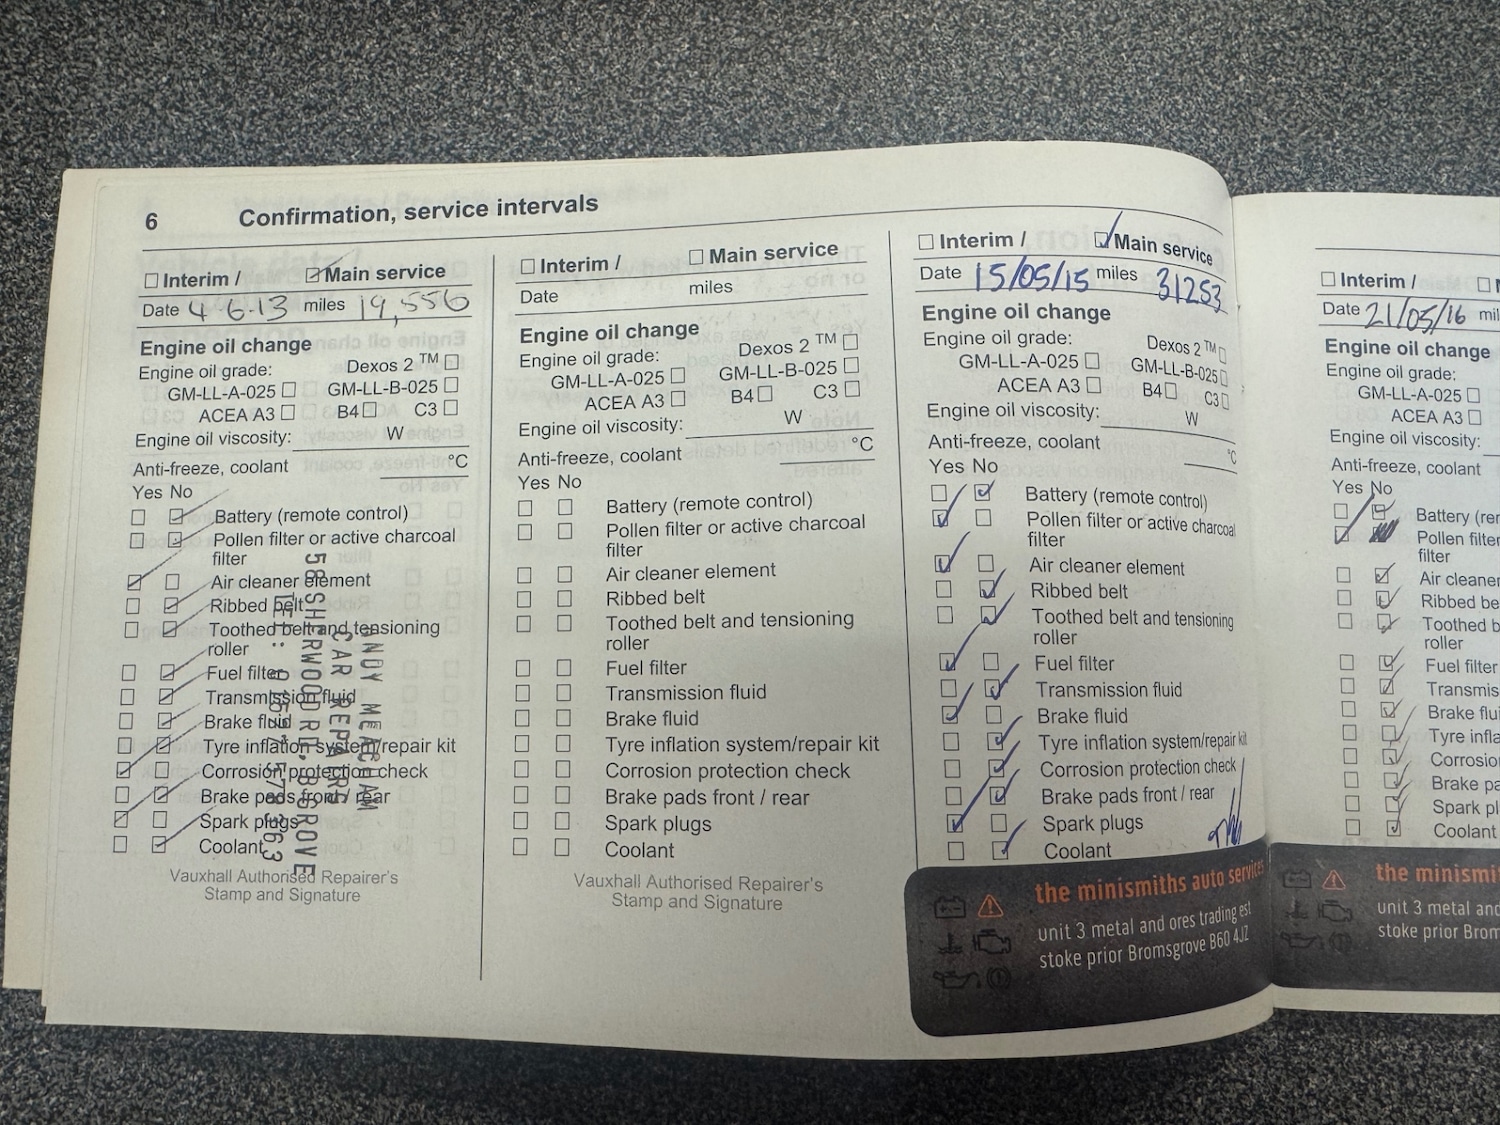 6 Confirmation, service intervals
Interim / Main service
Date 4-6-13 miles 19,556
Engine oil change
Engine oil grade: Dexos 2 ™
GM-LL-A-025 GM-LL-B-025
ACEA A3 B4 C3
Engine oil viscosity: W
Anti-freeze, coolant °C
Yes No
Battery (remote control)
Pollen filter or active charcoal
filter
Air cleaner element
Ribbed belt
Toothed belt and tensioning
roller
Fuel filter
Transmission fluid
Brake fluid
Tyre inflation system/repair kit
Corrosion protection check
Brake pads front / rear
Spark plugs
Coolant
ANDY MEACHAM
CAR REPAIRS
58 SHERWOOD RD, B'GROVE
Vauxhall Authorised Repairer's
Stamp and Signature
Interim / Main service
Date miles
Engine oil change
Engine oil grade: Dexos 2 ™
GM-LL-A-025 GM-LL-B-025
ACEA A3 B4 C3
Engine oil viscosity: W
Anti-freeze, coolant °C
Yes No
Battery (remote control)
Pollen filter or active charcoal
filter
Air cleaner element
Ribbed belt
Toothed belt and tensioning
roller
Fuel filter
Transmission fluid
Brake fluid
Tyre inflation system/repair kit
Corrosion protection check
Brake pads front / rear
Spark plugs
Coolant
Vauxhall Authorised Repairer's
Stamp and Signature
Interim / Main service
Date 15/05/15 miles 31253
Engine oil change
Engine oil grade: Dexos 2 ™
GM-LL-A-025 GM-LL-B-025
ACEA A3 B4 C3
Engine oil viscosity: W
Anti-freeze, coolant °C
Yes No
Battery (remote control)
Pollen filter or active charcoal
filter
Air cleaner element
Ribbed belt
Toothed belt and tensioning
roller
Fuel filter
Transmission fluid
Brake fluid
Tyre inflation system/repair kit
Corrosion protection check
Brake pads front / rear
Spark plugs
Coolant
the minismiths auto services
unit 3 metal and ores trading est
stoke prior Bromsgrove B60 4JZ
Interim / M
Date 21/05/16 mil
Engine oil change
Engine oil grade:
GM-LL-A-025
ACEA A3
Engine oil viscosity:
Anti-freeze, coolant
Yes No
Battery (rem
Pollen filter
filter
Air cleaner
Ribbed be
Toothed b
roller
Fuel filter
Transmis
Brake flui
Tyre infla
Corrosio
Brake pa
Spark pl
Coolant
the minismi
unit 3 metal and
stoke prior Brom